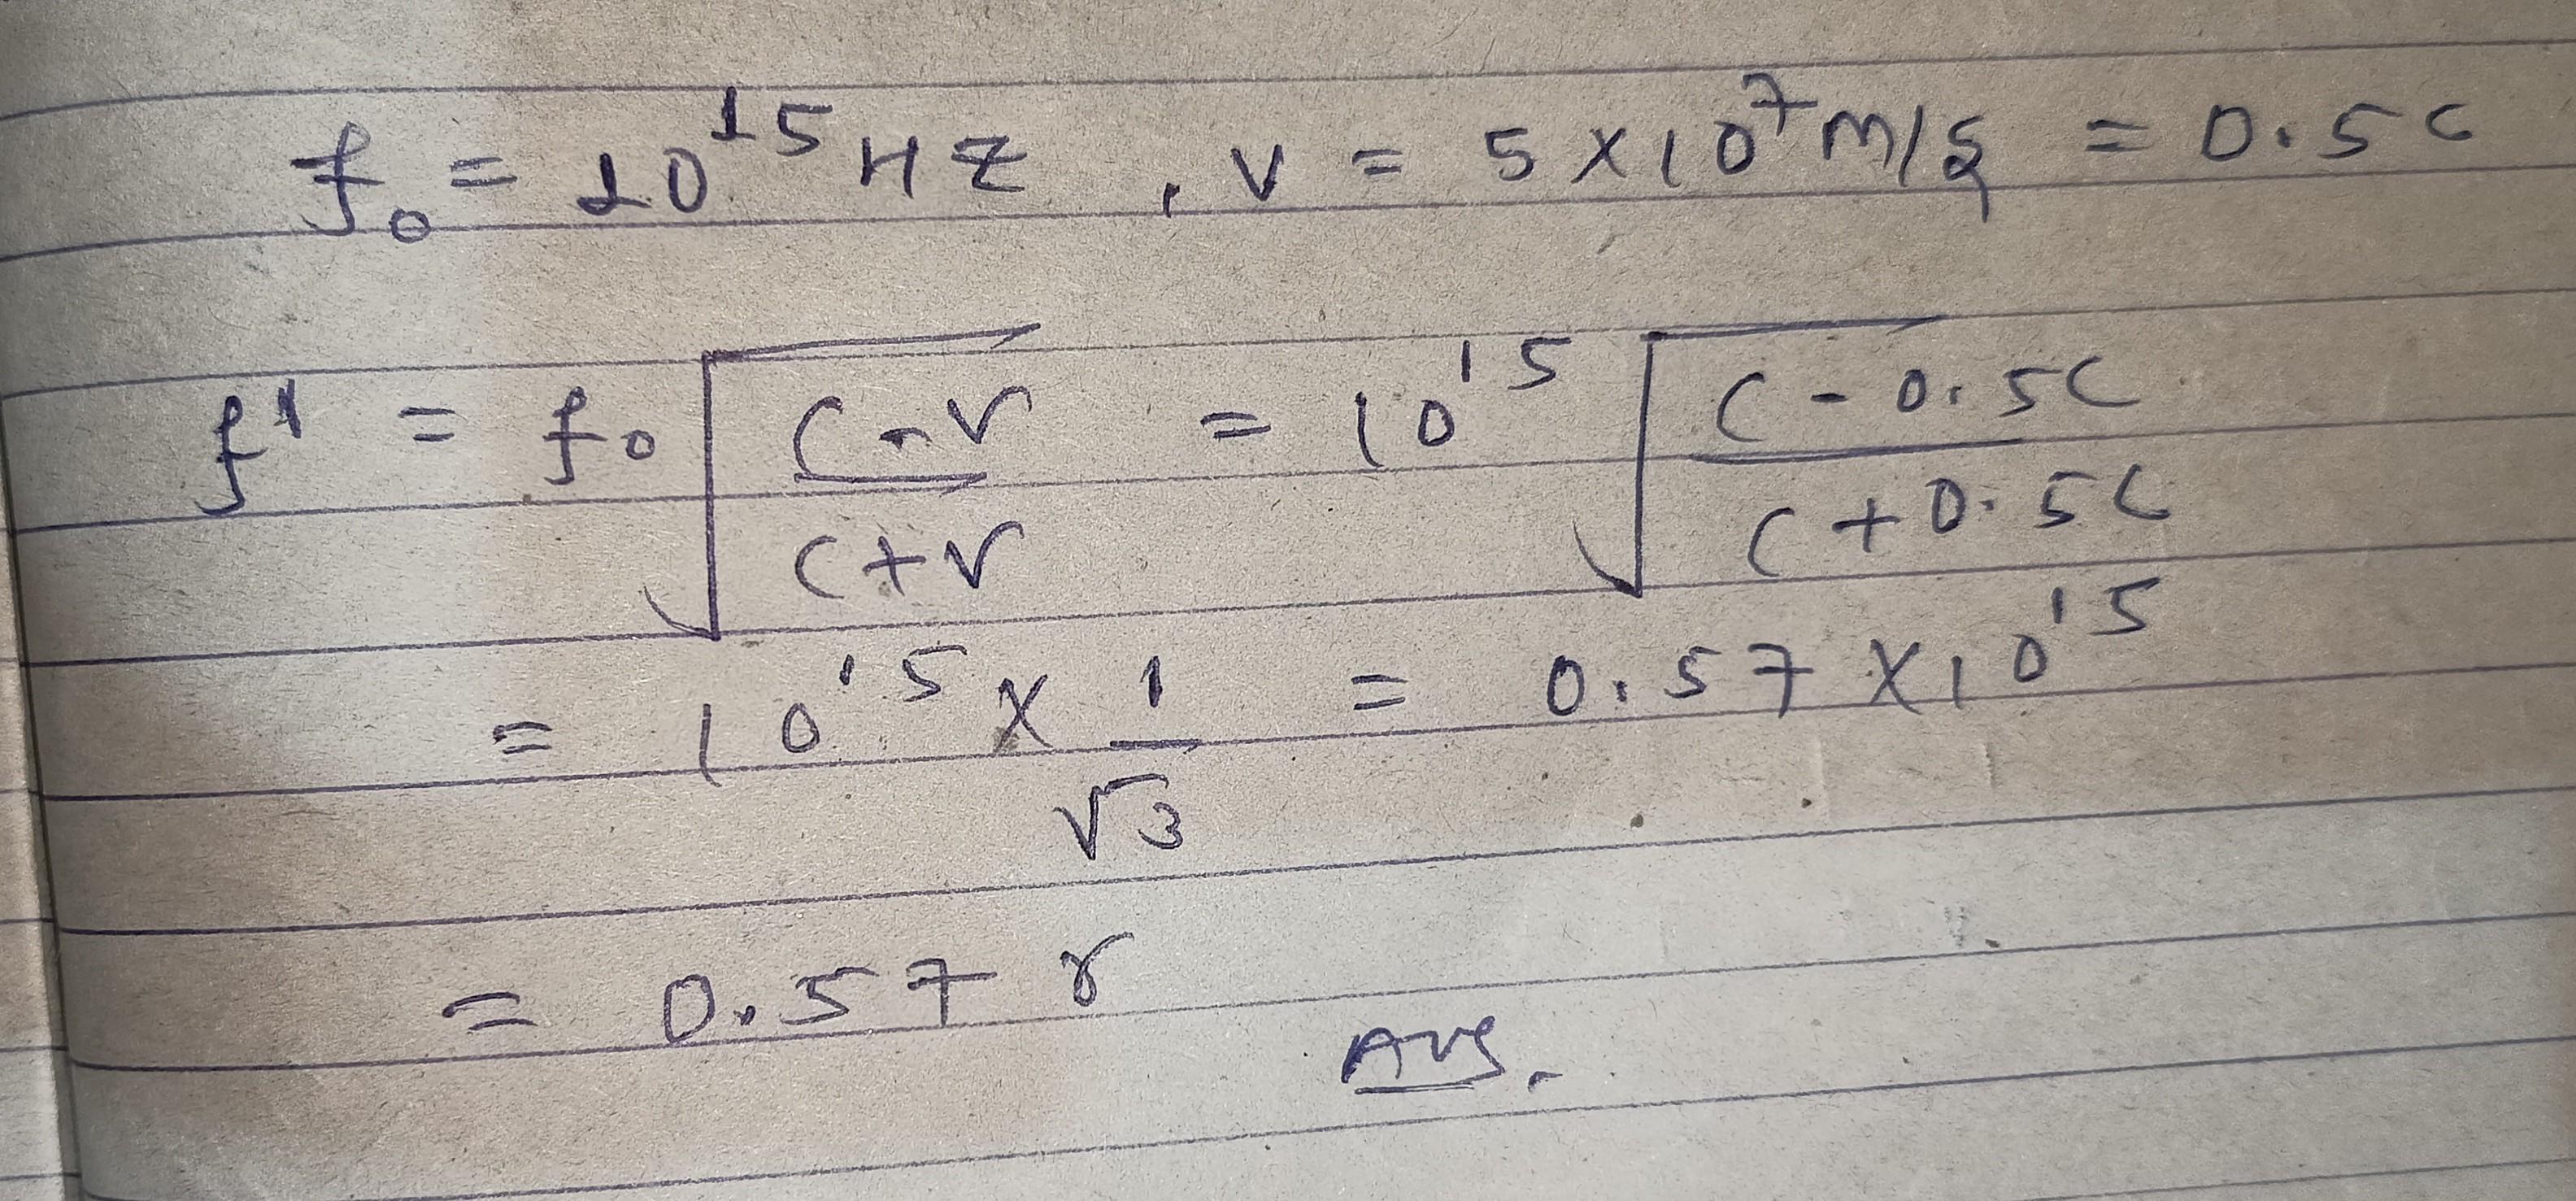 f₀ = 10¹⁵ HZ , v = 5 × 10⁷ m/s = 0.5c
f' = f₀ √((c-v)/(c+v)) = 10¹⁵ √((c-0.5c)/(c+0.5c))
= 10¹⁵ × 1/√3 = 0.57 × 10¹⁵
= 0.57 r
Ans.